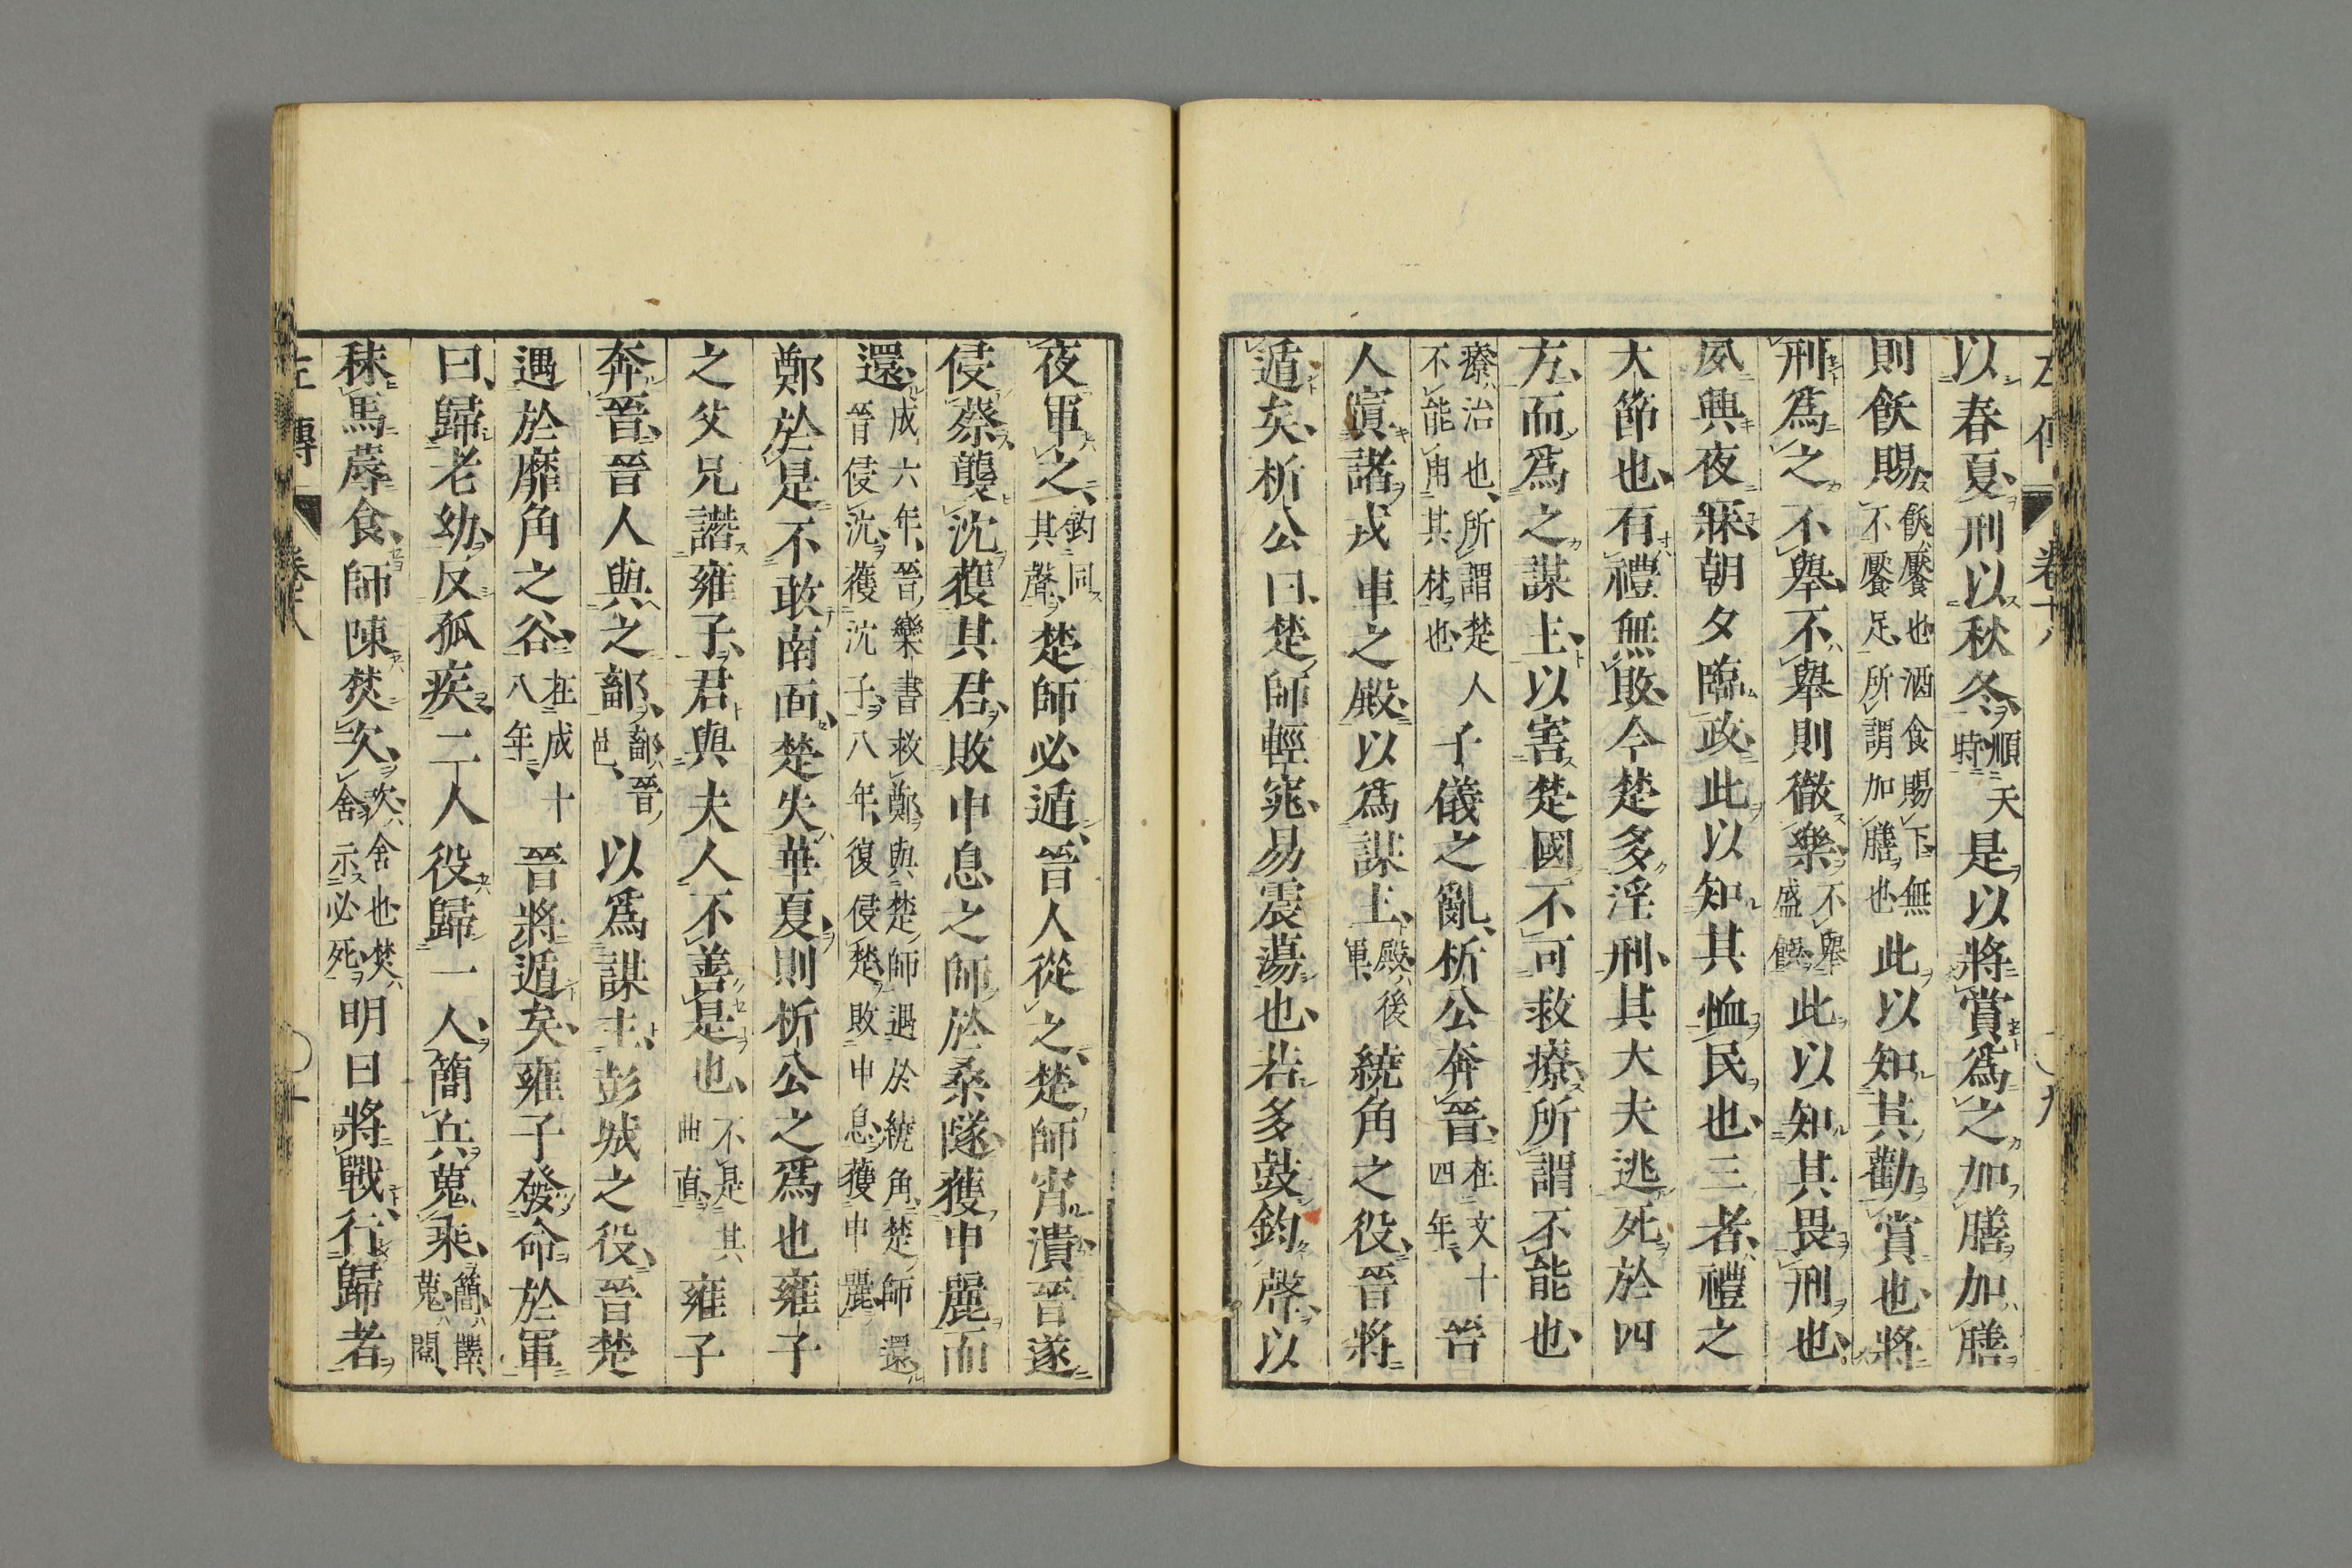 以春夏刑以秋冬順天時是以將賞爲之加膳加膳
則飫賜飫饜也酒食賜下無不饜足所謂加膳也此以知其勸賞也將
刑爲之不舉不舉則徹樂不舉盛饌此以知其畏刑也
夙興夜寐朝夕臨政此以知其恤民也三者禮之
大節也有禮無敗今楚多淫刑其大夫逃死於四
方而爲之謀主以害楚國不可救療所謂不能也
療治也所謂楚人不能用其材也子儀之亂析公奔晉在文十四年晉
人寘諸戎車之殿以爲謀主殿後軍繞角之役晉將
遁矣析公曰楚師輕窕易震蕩也若多鼓鈞聲以
夜軍之鈞同其聲楚師必遁晉人從之楚師宵潰晉遂
侵蔡襲沈獲其君敗申息之師於桑隧獲申麗而
還成六年晉欒書救鄭與楚師遇於繞角楚師還晉侵沈獲沈子八年復侵楚敗申息獲申麗
鄭於是不敢南面楚失華夏則析公之爲也雍子
之父兄譖雍子君與夫人不善是也不是其曲直雍子
奔晉晉人與之鄐鄐晉邑以爲謀主彭城之役晉楚
遇於靡角之谷在成十八年晉將遁矣雍子發命於軍
曰歸老幼反孤疾二人役歸一人簡兵蒐乘簡擇蒐閱
秣馬蓐食師陳焚次次舍也焚舍示必死明日將戰行歸者
左傳 卷十八